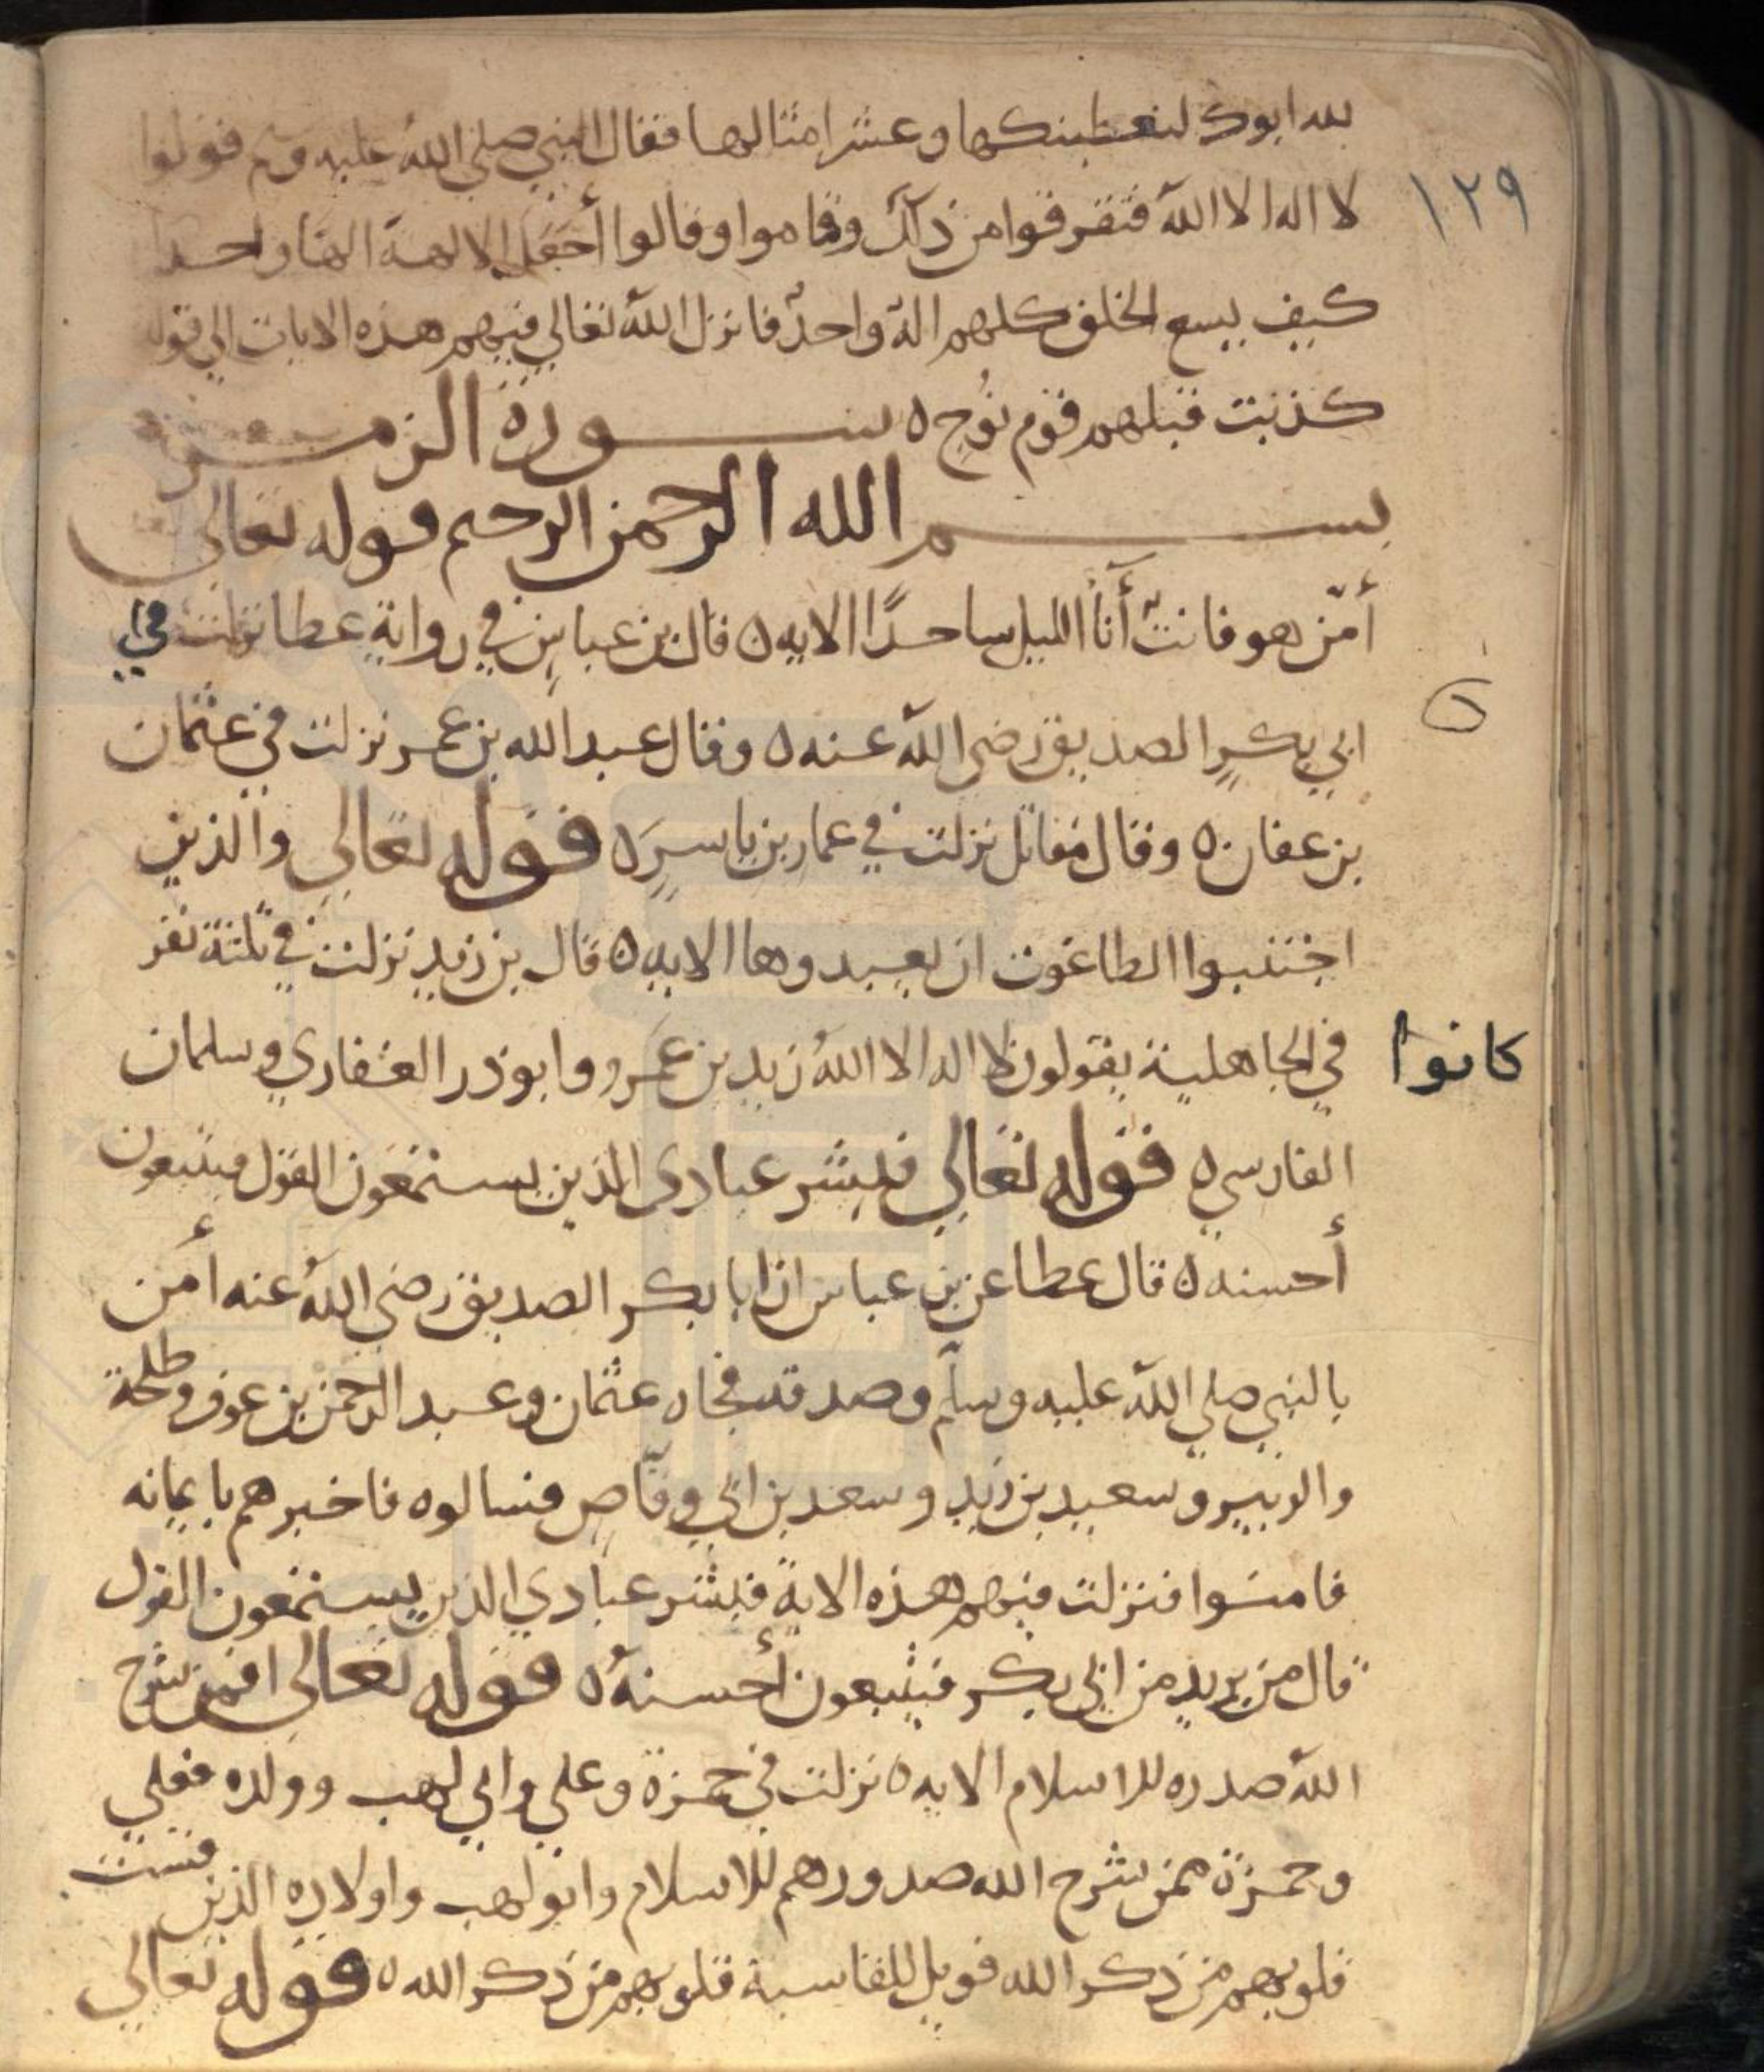 لله ابوك لنعطينكها وعشر امثالها فقال النبي صلي الله عليه وسلم قولوا
١٢٩
لا اله الا الله فتفرقوا من ذلك وقاموا وقالوا أجعل الالهة الها واحدا
كيف يسع الخلق كلهم اله واحد فانزل الله تعالي فيهم هذه الايات الي قوله
كذبت قبلهم قوم نوح ه سورة الزمر
بسم الله الرحمن الرحيم قوله تعالى
أمّن هو قانت أنآ الليل ساجدًا الايه ه قال بن عباس في رواية عطا نزلت في
ابي بكرٍ الصديق رضي الله عنه ه وقال عبد الله بن عمر نزلت في عثمان
بن عفان ه وقال مقاتل نزلت في عمار بن ياسر ه قوله تعالي والذين
اجتنبوا الطاغوت ان يعبدوها الايه ه قال بن زيد نزلت في ثلثة نفر
كانوا
في الجاهلية يقولون لا اله الا الله زيد بن عمرو وابو ذر الغفاري وسلمان
الفارسي ه قوله تعالي فبشر عبادي الذين يستمعون القول فيتبعون
أحسنه ه قال عطا عن بن عباس ان ابا بكر الصديق رضي الله عنه أمن
بالنبي صلي الله عليه وسلم وصدقه فجاه عثمان وعبد الرحمن بن عوف وطلحة
والزبير وسعيد بن زيد وسعد بن ابي وقاص فسالوه فاخبرهم بايمانه
فامنوا فنزلت فيهم هذه الاية فبشر عبادي الذين يستمعون القول
قال من يريد من ابي بكر فيتبعون أحسنه ه قوله تعالى افمن شرح
الله صدره للاسلام الايه ه نزلت في حمزة وعلي وابي لهب وولده فعلي
وحمزة ممن شرح الله صدورهم للاسلام وابو لهب واولاده الذين قست
قلوبهم من ذكر الله فويل للقاسية قلوبهم من ذكر الله ه قوله تعالي